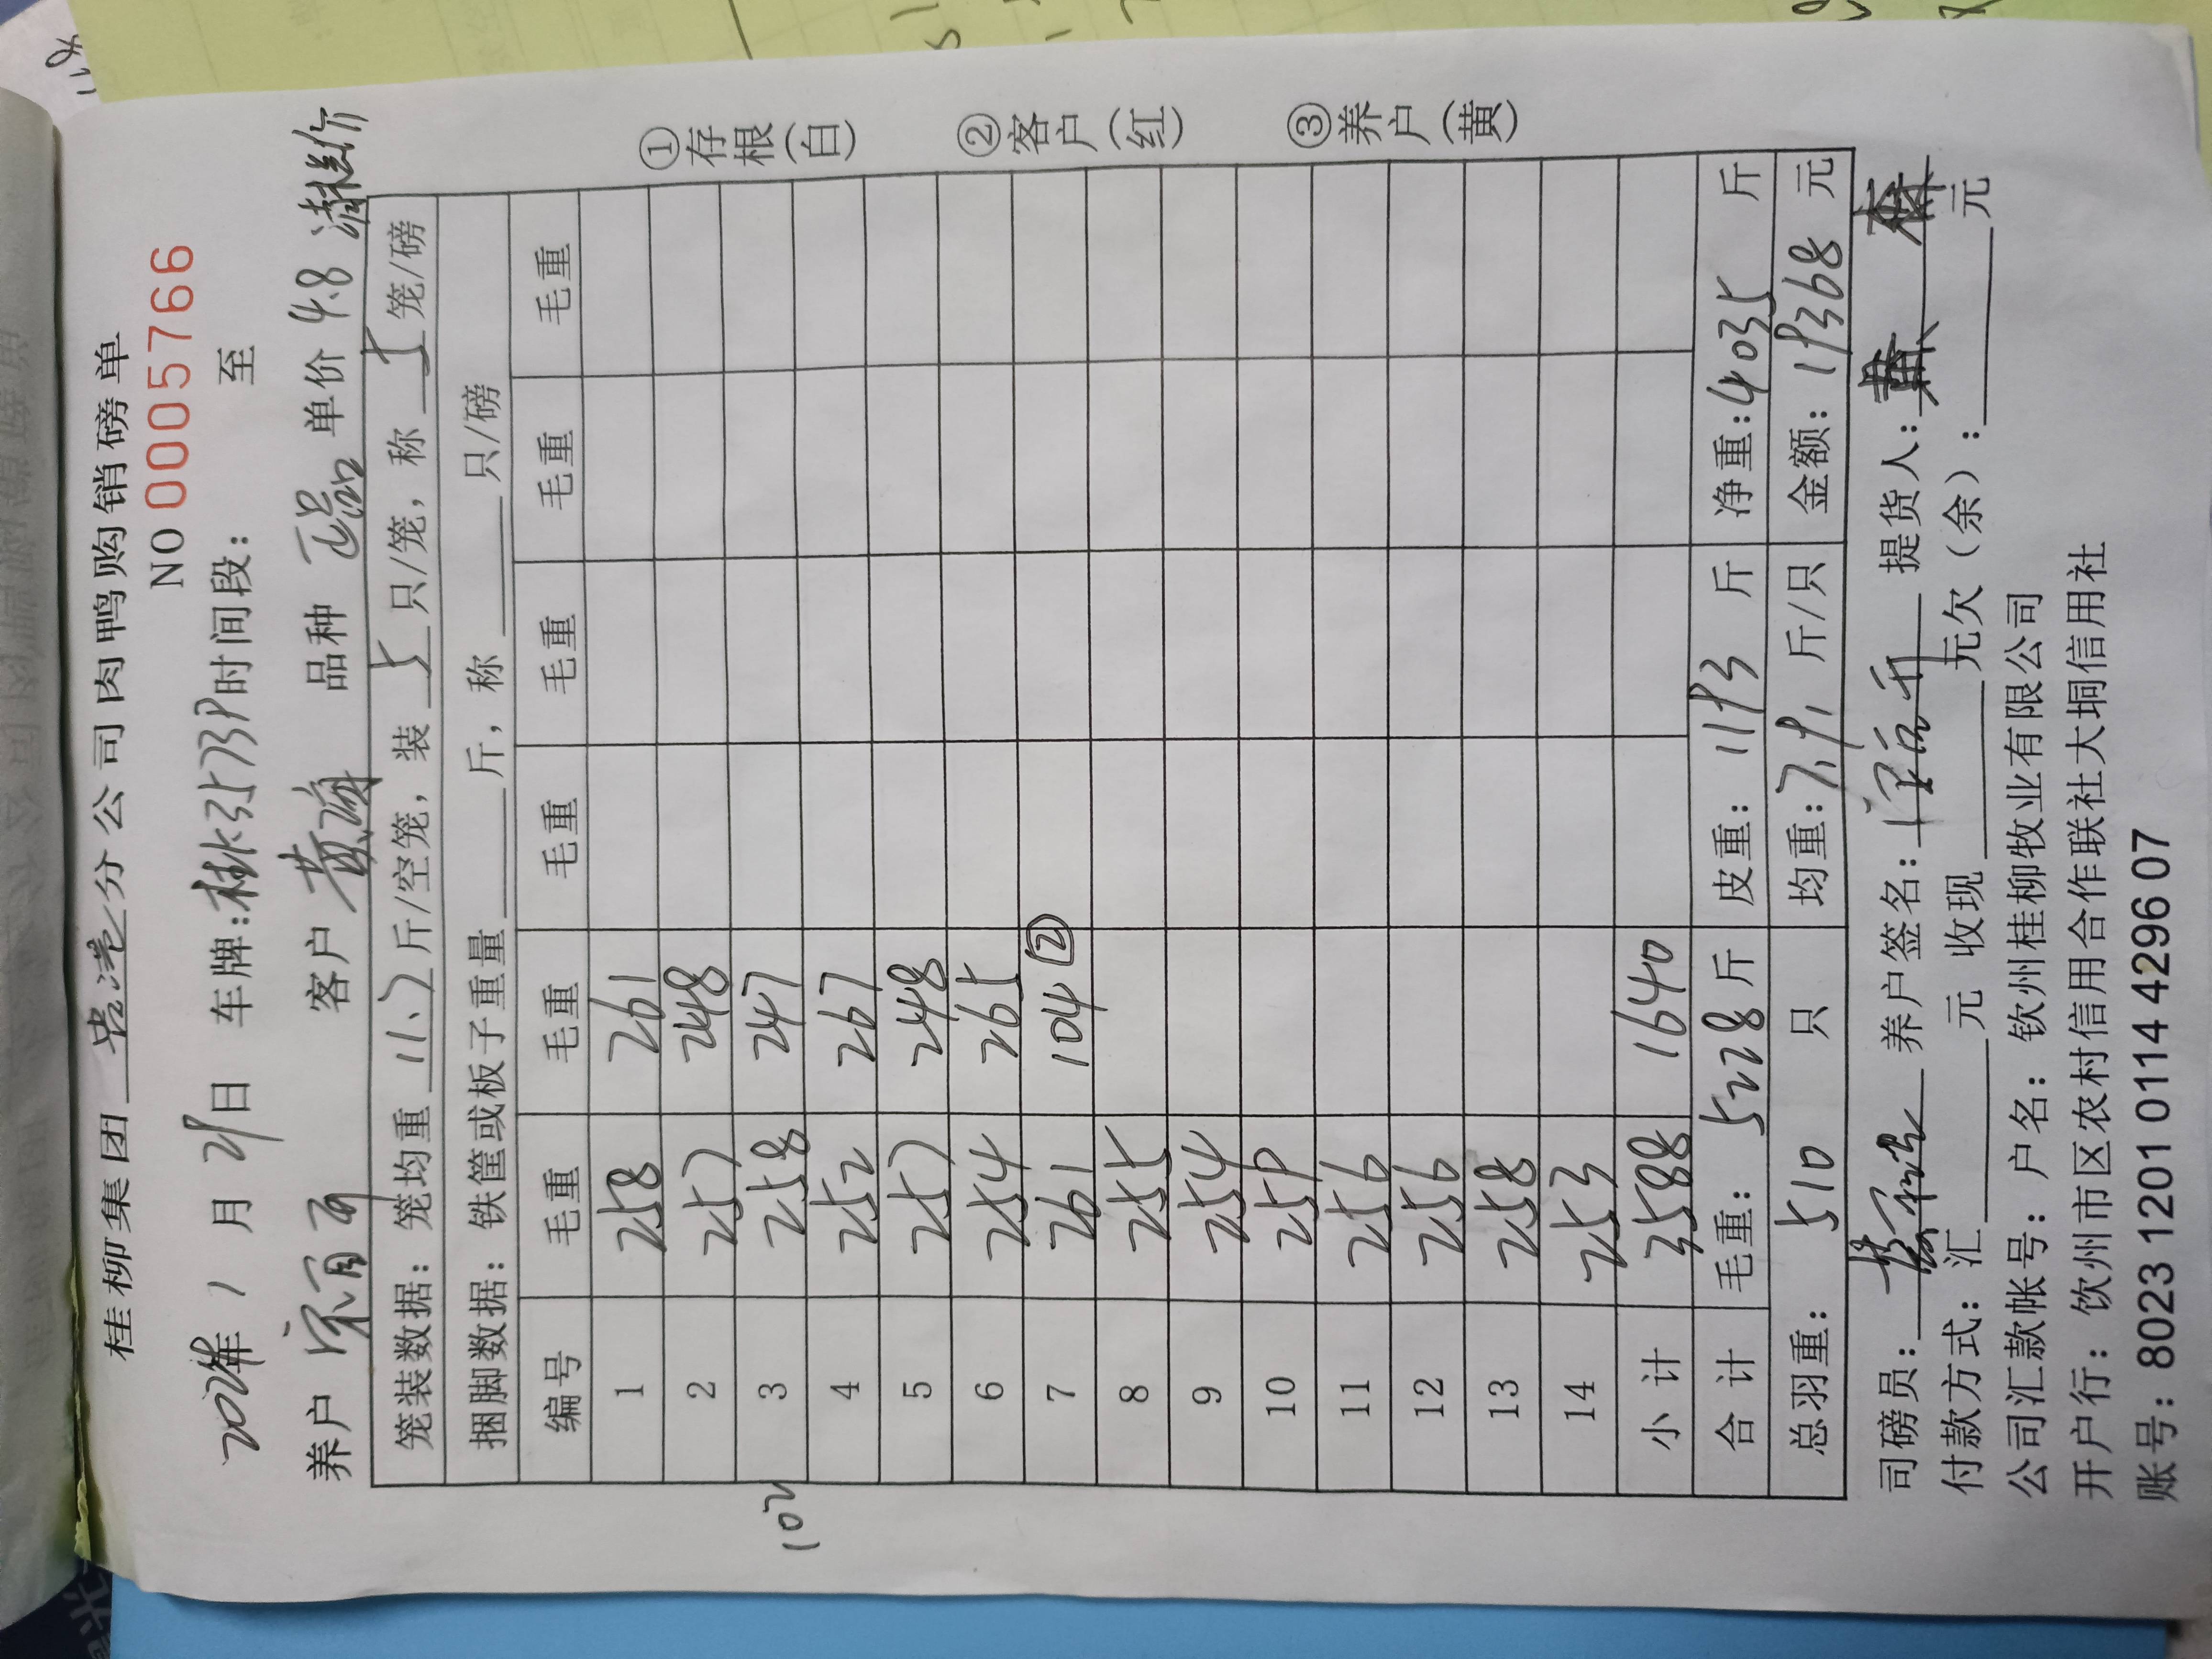 桂柳集团 贵港 分公司肉鸭购销磅单
NO 0005766
1月29日 车牌: 时间段: 至
养户 客户 黄海 品种 正品 单价 4.8 清栏价
笼装数据:笼均重 11.7 斤/空笼,装 5 只/笼,称 5 笼/磅
捆脚数据:铁筐或板子重量 斤,称 只/磅
编号 毛重 毛重 毛重 毛重 毛重 毛重
1 258 261
2 257 248
102
3 258 247
4 252 267
5 257 248
6 254 265
7 261 104 2
8 255
9 254
10 259
11 256
12 256
13 258
14 253
小计 3588 1640
合计 毛重: 5228 斤 皮重: 1193 斤 净重: 4035 斤
总羽重: 510 只 均重: 7.91 斤/只 金额: 19368 元
司磅员: 养户签名: 提货人:
付款方式:汇 元 收现 元欠(余): 元
公司汇款帐号:户名:钦州桂柳牧业有限公司
开户行:钦州市区农村信用合作联社大垌信用社
账号:8023 1201 0114 4296 07
①存根(白)
②客户(红)
③养户(黄)